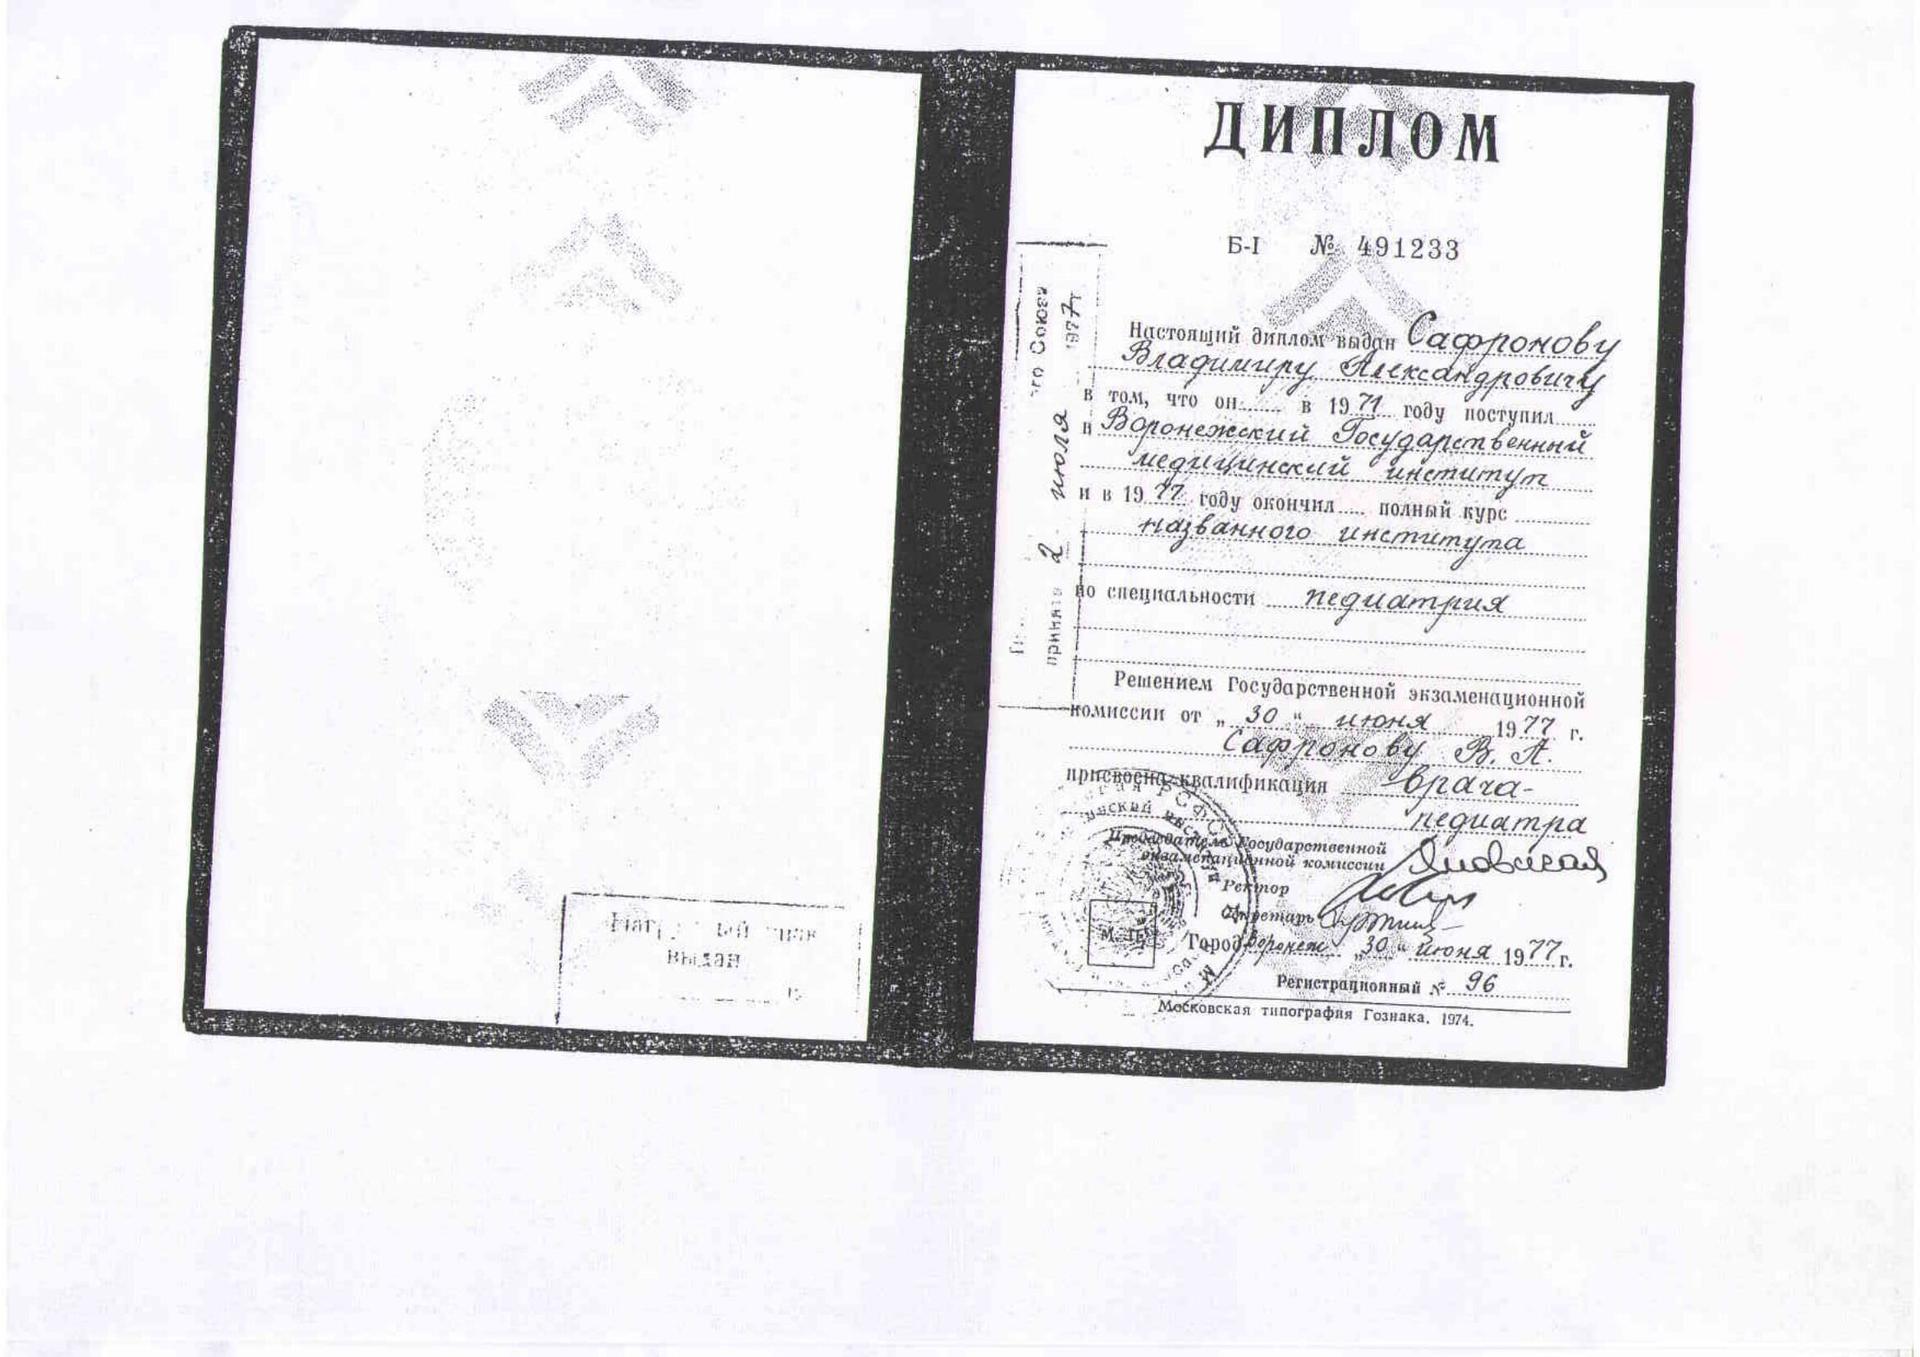 выдан
ДИПЛОМ
Б-I № 491233
Настоящий диплом выдан Сафронову
Владимиру Александровичу
в том, что он в 1971 году поступил
в Воронежский Государственный
медицинский институт
и в 1977 году окончил полный курс
названного института
по специальности педиатрия
Решением Государственной экзаменационной
комиссии от „30“ июня 1977 г.
Сафронову В. А.
присвоена квалификация врача-
педиатра
Председатель Государственной
экзаменационной комиссии
Ректор
Секретарь
Город Воронеж „30“ июня 1977 г.
Регистрационный № 96
Московская типография Гознака. 1974.
М. П.
Союза
принята 2 июля 1977 г.